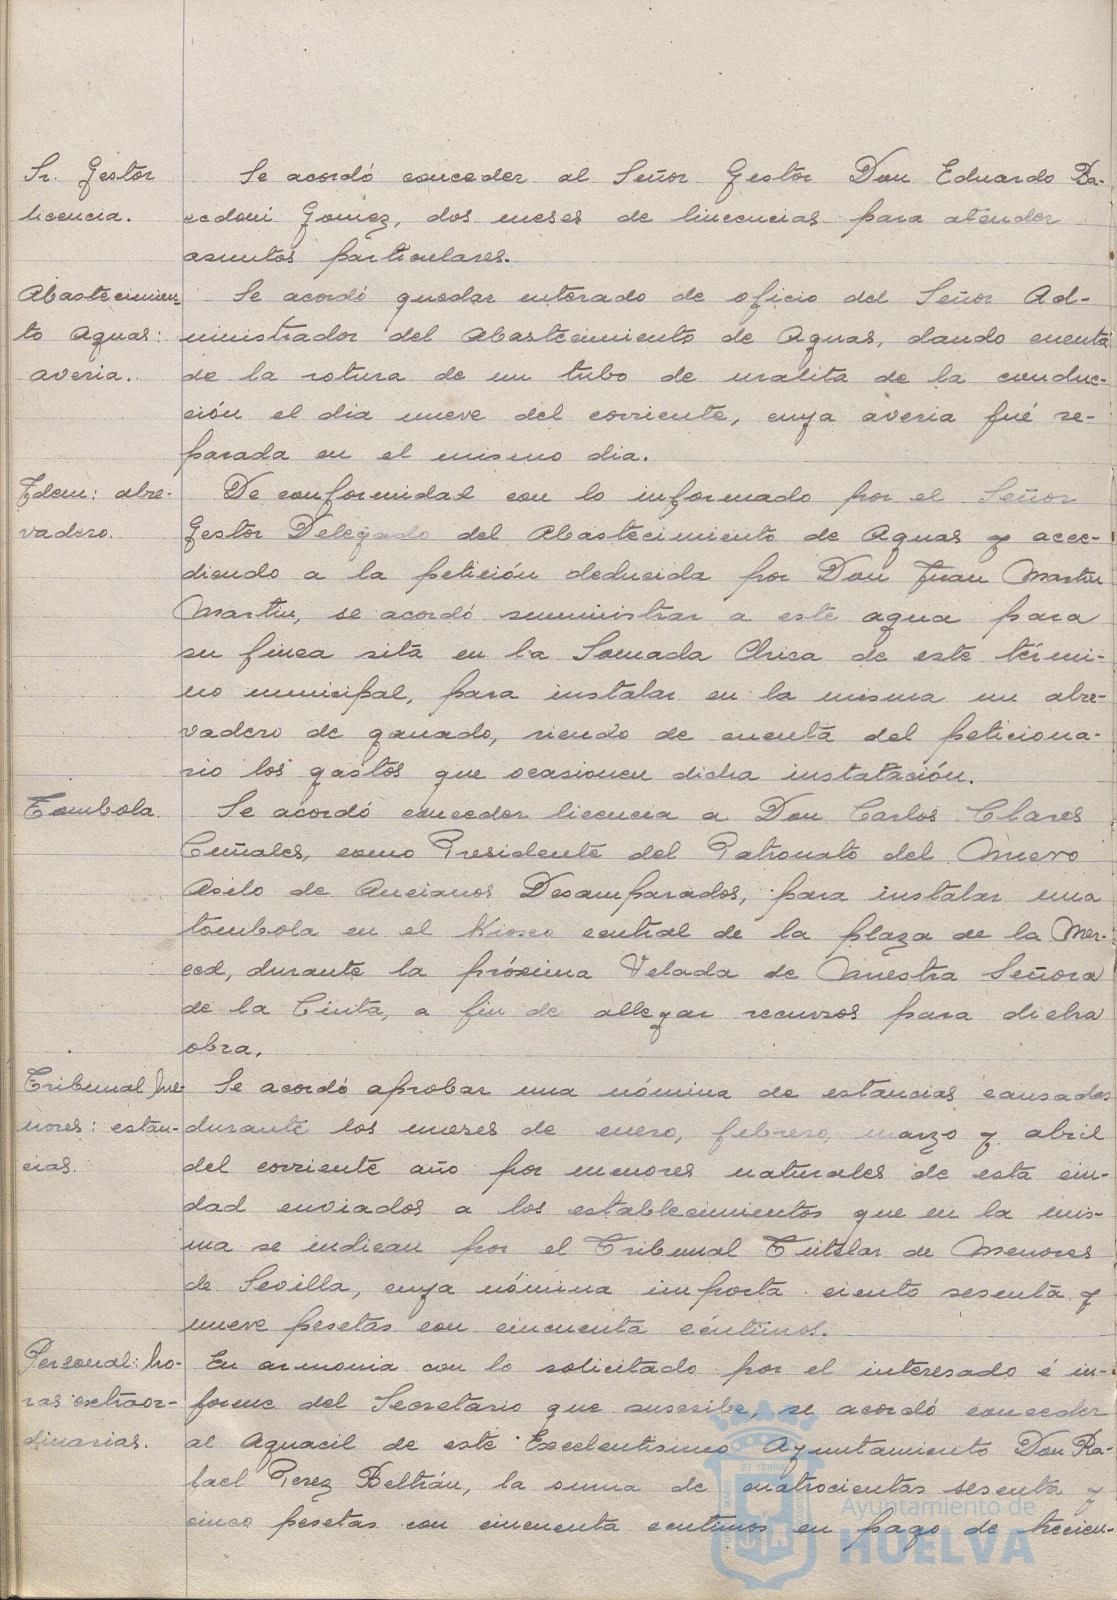 Sr. Gestor
licencia.
Se acordó conceder al Señor Gestor Don Eduardo Ba-
ccdoni Gomez, dos meses de lincencias para atender
asuntos particulares.
Abastecimien-
to Aguas:
averia.
Se acordó quedar enterado de oficio del Señor Ad-
ministrador del Abastecimiento de Aguas, dando cuenta
de la rotura de un tubo de uralita de la conduc-
ción el dia nueve del corriente, cuya averia fué re-
parada en el mismo dia.
Idem: abre-
vadero.
De conformidad con lo informado por el Señor
Gestor Delegado del Abastecimiento de Aguas y acce-
diendo a la petición deducida por Don Juan Martin
Martin, se acordó suministrar a este agua para
su finca sita en la Jomada Chica de este térmi-
no municipal, para instalar en la misma un abre-
vadero de ganado, siendo de cuenta del peticiona-
rio los gastos que ocasionen dicha instatación.
Tombola.
Se acordó conceder licencia a Don Carlos Clares
Cuñales, como Presidente del Patronato del Nuevo
Asilo de Ancianos Desamparados, para instalar una
tombola en el Kiosco central de la plaza de la Mer-
ced, durante la próxima Velada de Nuestra Señora
de la Cinta, a fin de allegar recursos para dicha
obra.
Tribunal Me-
nores: estan-
cias.
Se acordó aprobar una nómina de estancias causadas
durante los meses de enero, febrero, marzo y abril
del corriente año por menores naturales de esta ciu-
dad enviados a los establecimientos que en la mis-
ma se indican por el Tribunal Tutelar de Menores
de Sevilla, cuya nómina importa ciento sesenta y
nueve pesetas con cincuenta céntimos.
Personal: ho-
ras extraor-
dinarias.
En armonia con lo solicitado por el interesado é in-
forme del Secretario que suscribe, se acordó conceder
al Aguacil de este Excelentisimo Ayuntamiento Don Ra-
fael Perez Beltrán, la suma de cuatrocientas sesenta y
cinco pesetas con cincuenta centimos en pago de trecien-
Ayuntamiento de
HUELVA